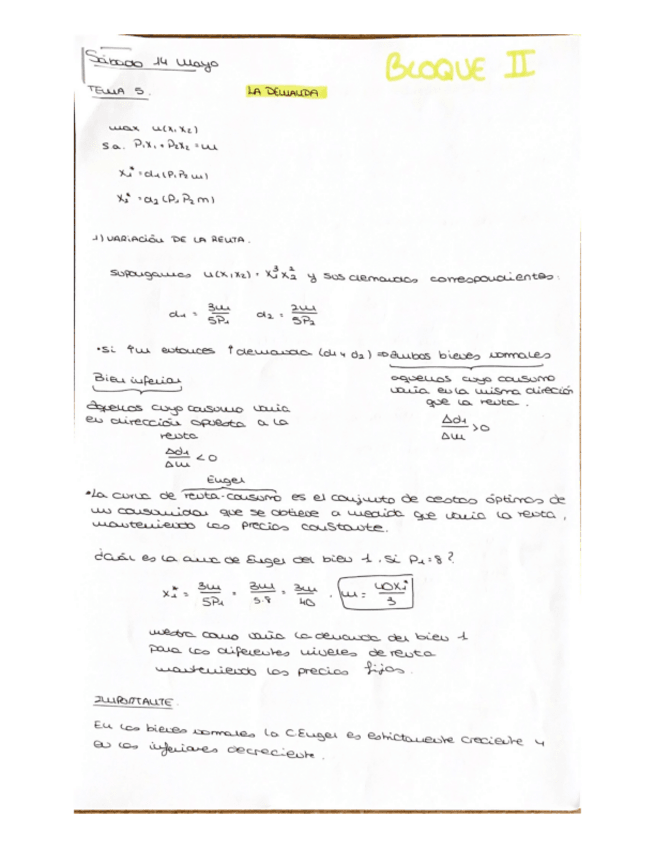 Sábado 14 Mayo
BLOQUE II
TEMA 5.
LA DEMANDA
max u(x₁ x₂)
s.a. P₁x₁ + P₂x₂ = m
x₁* = d₁(P₁ P₂ m)
x₂* = d₂(P₁ P₂ m)
1) VARIACIÓN DE LA RENTA.
Supongamos u(x₁x₂) = x₁³ x₂² y sus demandas correspondientes:
d₁ = 3m/5P₁ d₂ = 2m/5P₂
• Si ↑m entonces ↑ demanda (d₁ y d₂) ⇒ Ambos bienes normales
Bien inferior
Aquellos cuyo consumo varia
en dirección opuesta a la
renta
Δd₁/Δm < 0
aquellos cuyo consumo
varia en la misma dirección
que la renta.
Δd₁/Δm > 0
Engel
• La curva de renta-consumo es el conjunto de cestas óptimas de
un consumidor que se obtiene a medida que varia la renta,
manteniendo los precios constante.
¿Cuál es la curva de Engel del bien 1, si P₁=8?
x₁* = 3m/5P₁ = 3m/5·8 = 3m/40 . m = 40x₁*/3
muestra como varia la demanda del bien 1
para los diferentes niveles de renta
manteniendo los precios fijos.
IMPORTANTE.
En los bienes normales la C.Engel es estrictamente creciente y
en los inferiores decreciente.